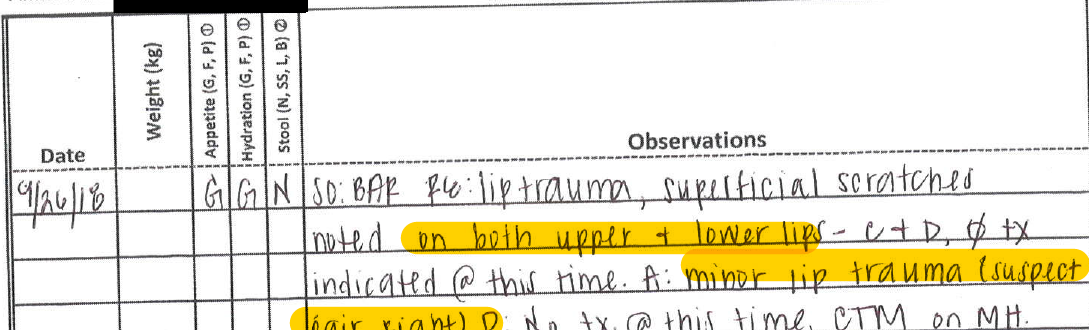 Date
Weight (kg)
Appetite (G, F, P) ①
Hydration (G, F, P) ①
Stool (N, SS, L, B) ②
Observations
9/26/18 G G N SO: BAR RE: lip trauma, superficial scratches
noted on both upper + lower lips - C + D, Ø tx
indicated @ this time. A: minor lip trauma (suspect
No tx @ this time. CTM on MH.